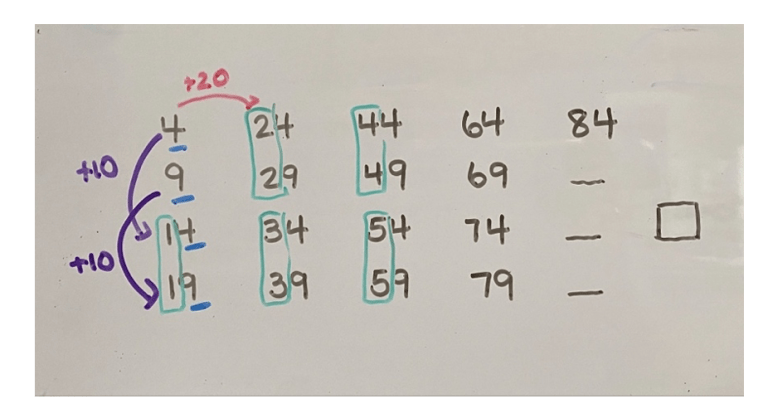 +20
4 24 44 64 84
+10
9 29 49 69 __
14 34 54 74 __
+10
19 39 59 79 __